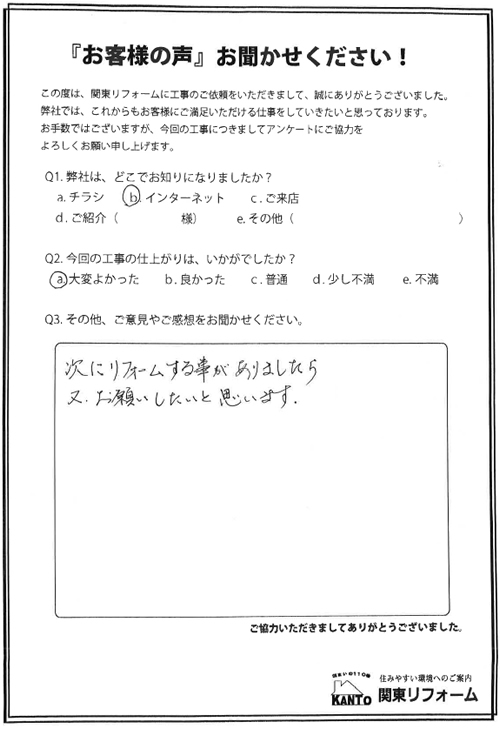 『お客様の声』お聞かせください！
この度は、関東リフォームに工事のご依頼をいただきまして、誠にありがとうございました。
弊社では、これからもお客様にご満足いただける仕事をしていきたいと思っております。
お手数ではございますが、今回の工事につきましてアンケートにご協力を
よろしくお願い申し上げます。
Q1. 弊社は、どこでお知りになりましたか？
a. チラシ b. インターネット c. ご来店
d. ご紹介（ 様） e. その他（ ）
Q2. 今回の工事の仕上がりは、いかがでしたか？
a. 大変よかった b. 良かった c. 普通 d. 少し不満 e. 不満
Q3. その他、ご意見やご感想をお聞かせください。
次にリフォームする事がありましたら
又、お願いしたいと思います.
ご協力いただきましてありがとうございました。
住まいの110番
KANTO
住みやすい環境へのご案内
関東リフォーム